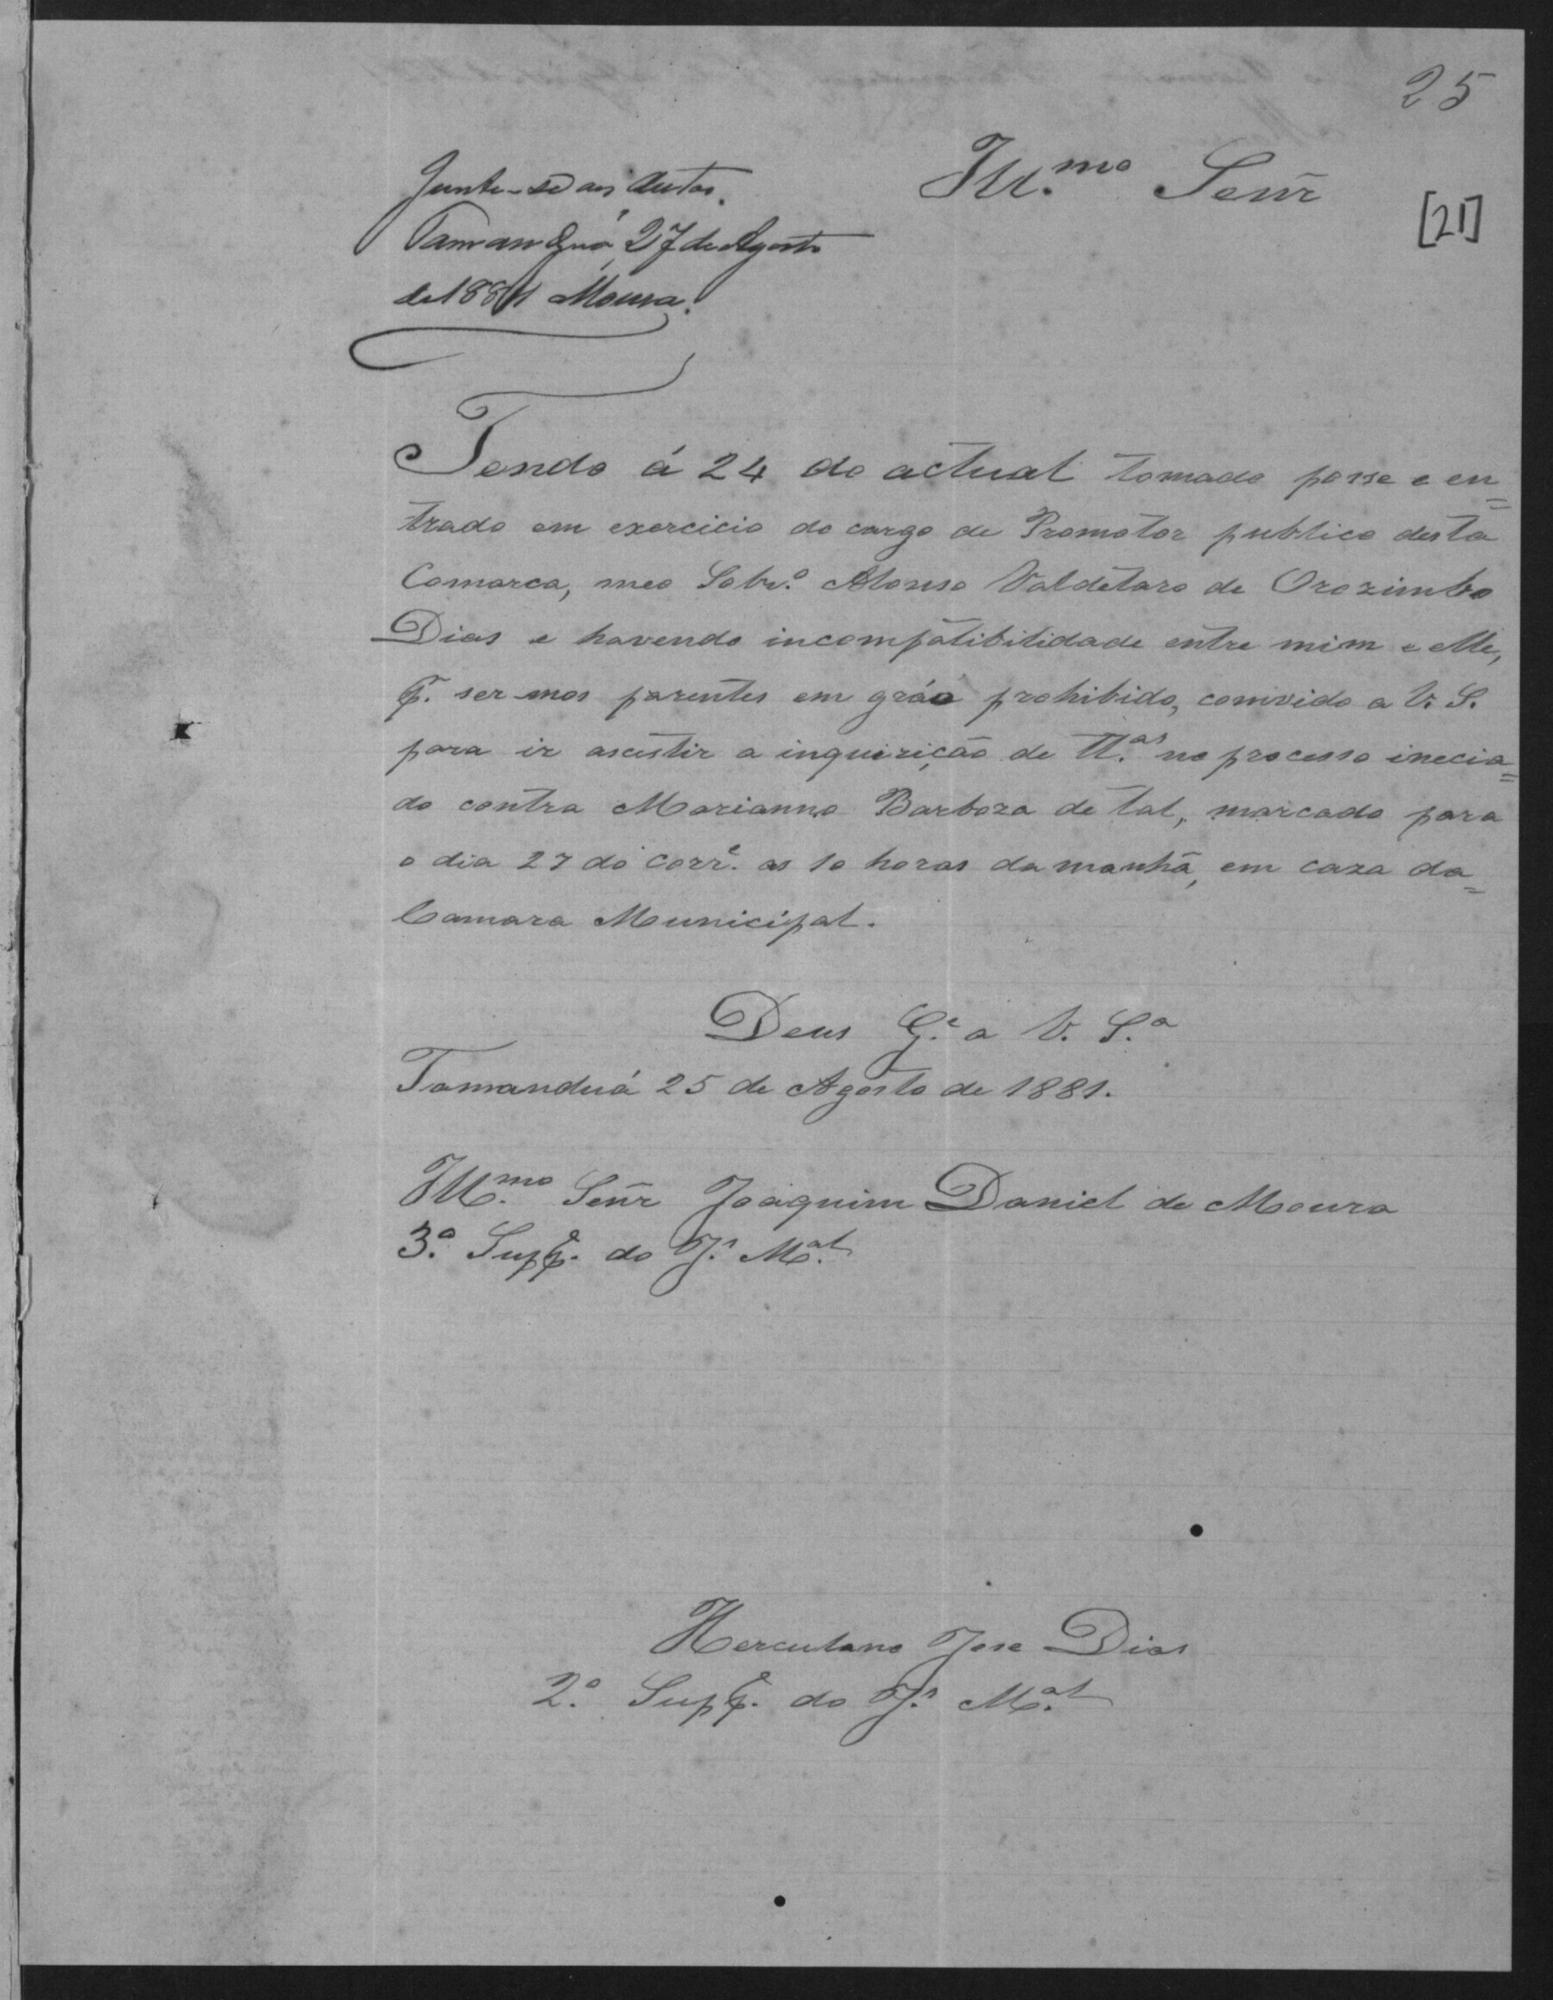 25
Ill.mo Senr
[21]
Junte-se aos autos.
Tamanduá, 27 de Agosto
de 1881 Moura.
Tendo á 24 do actual tomado posse e en=
trado em exercicio do cargo de Promotor publico desta
Comarca, meo Sobr.º Afonso Valdetaro de Orozimbo
Dias e havendo incompatibilidade entre mim e elle,
p.r sermos parentes em gráo prohibido, convido a V. S.
para ir ascistir a inquirição de tt.as no processo inecia=
do contra Marianno Barboza de tal, marcado para
o dia 27 do corr.e as 10 horas da manhã, em caza da=
Camara Municipal.
Deus G.e a V. S.a
Tamanduá 25 de Agosto de 1881.
Ill.mo Senr Joaquim Daniel de Moura
3.º Supp.e do J.s M.al
Herculano Jose Dias
2.º Supp.e do J.s M.al